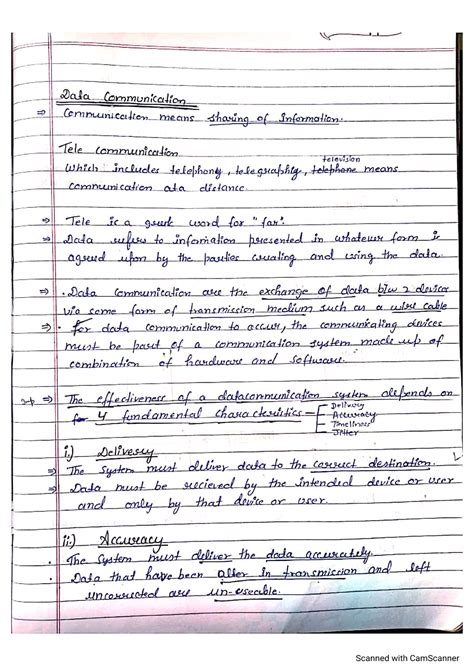 Data Communication
⇒ Communication means sharing of Information.
Tele communication
television
Which includes telephony, telegraphy, telephone means
communication ata distance.
⇒ Tele is a greek word for "far".
⇒ Data refers to information presented in whatever form is
agreed upon by the parties creating and using the data.
⇒ . Data Communication are the exchange of data b/w 2 devices
via some form of transmission medium such as a wire cable
⇒ . For data communication to accur, the communicating devices
must be part of a communication system made up of
combination of hardware and software.
⇒ The effectiveness of a datacommunication system depends on
for 4 fundamental characteristics
Delivery
Accuracy
Timeliness
Jitter
i.) Delivery
⇒ The System must deliver data to the correct destination.
⇒ Data must be recieved by the intended device or user
and only by that device or user.
ii.) Accuracy
. The System must deliver the data accurately.
. Data that have been alter in transmission and left
uncorrected are un-useable.
Scanned with CamScanner